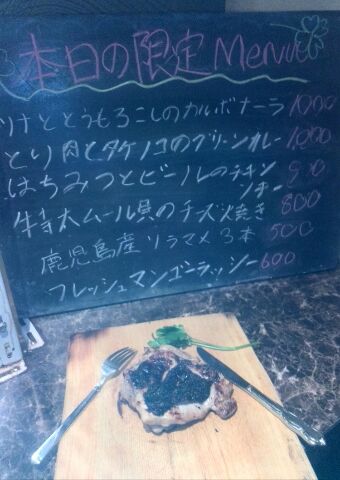 本日の限定Menu
ツナととうもろこしのカルボナーラ 1000
とり肉とタケノコのグリーンカレー 1000
はちみつとビールのチキンソテー
特大ムール貝のチーズ焼き 800
鹿児島産ソラマメ3本 500
フレッシュマンゴーラッシー 600